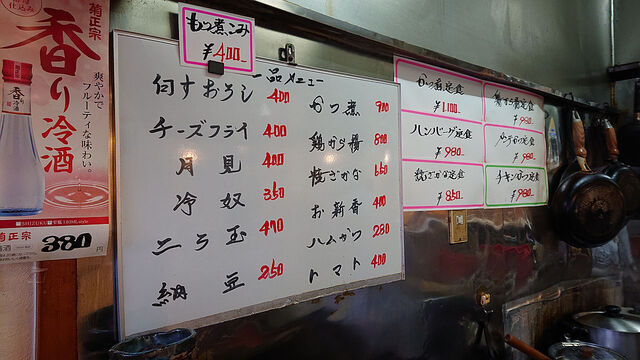 菊正宗
香り冷酒
爽やかで
フルーティな味わい。
菊正宗
380円
もつ煮こみ
¥400-
一品メニュー
チーズフライ 400
月見 400
冷奴 350
納豆 250
かつ煮 900
鶏から揚 800
焼ざかな 650
お新香 400
ハムかつ 280
トマト 400
かつ重定食
¥1,100-
ハンバーグ定食
¥980-
焼ざかな定食
¥850-
¥980-
¥980-
チキンかつ定食
¥980-